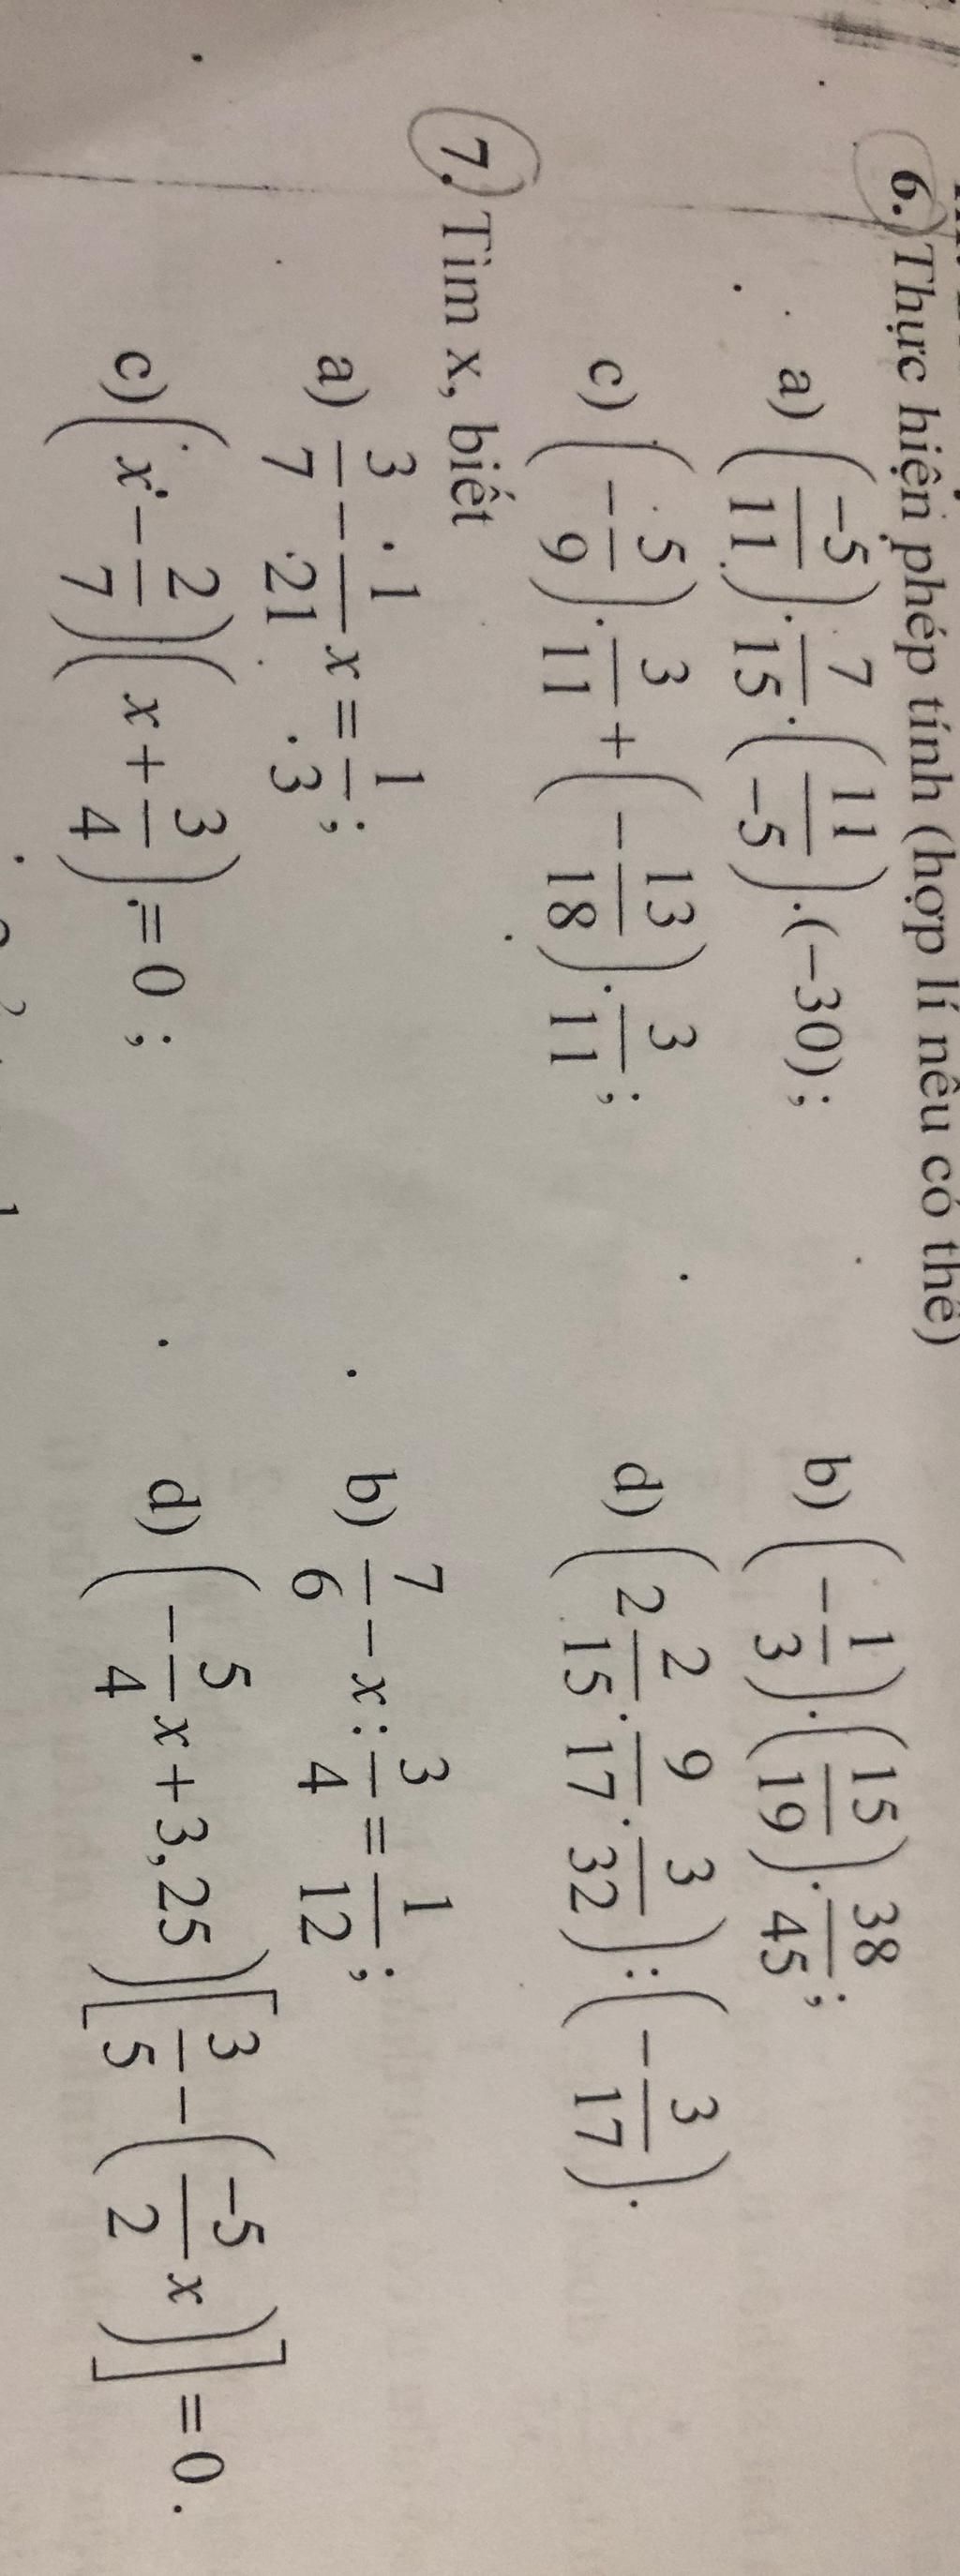 6. Thực hiện phép tính (hợp lí nếu có thể)
a) (-5/11).7/15.(11/-5).(-30);
b) (-1/3).(15/19).38/45;
c) (-5/9).3/11+(-13/18).3/11;
d) (2 2/15.9/17.3/32):(-3/17).
7. Tìm x, biết
a) 3/7-1/21x=1/3;
b) 7/6-x:3/4=1/12;
c) (x-2/7)(x+3/4)=0;
d) (-5/4x+3,25)[3/5-(-5/2x)]=0.